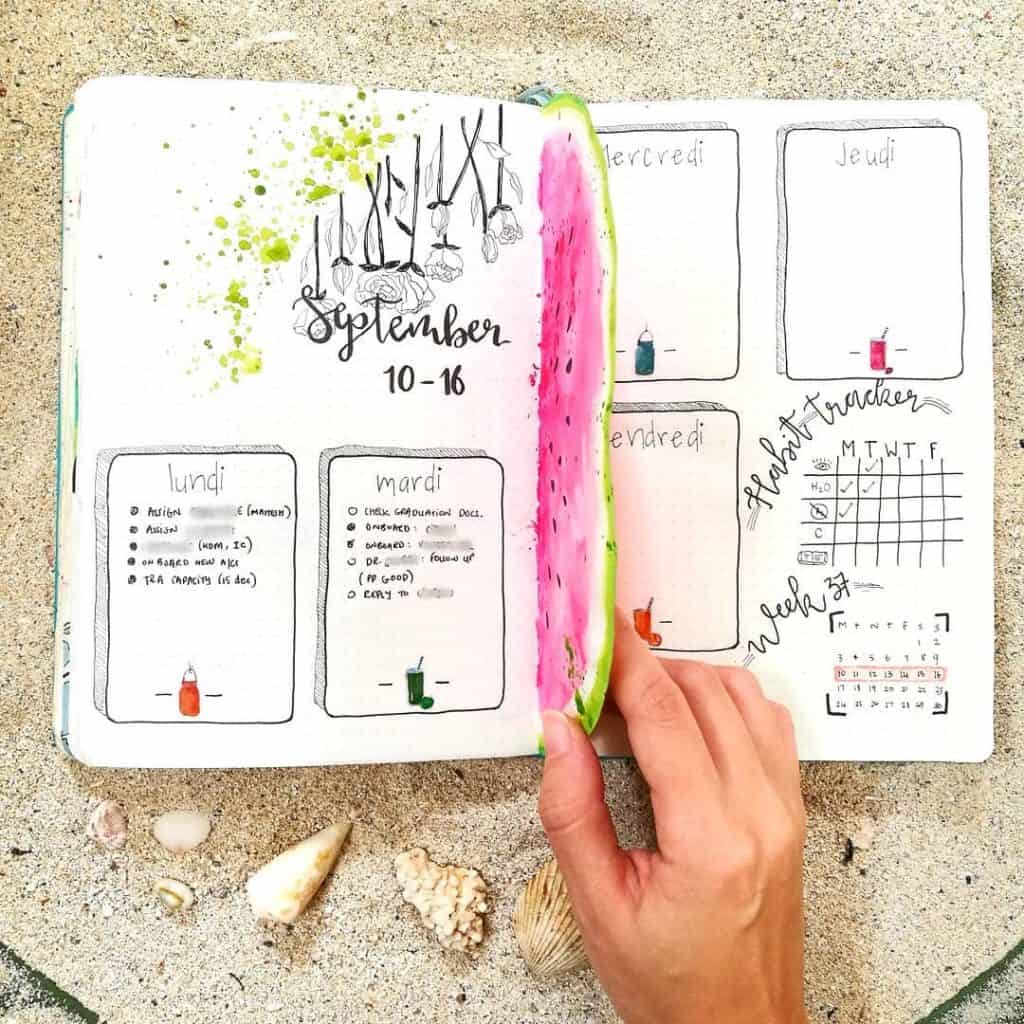 September
10-16
lundi
ASSIGN E (MAMESH)
ASSIGN
(KOM, IC)
ONBOARD NEW A/CS
TRA CAPACITY (15 DEC)
mardi
CHECK GRADUATION DOCS.
ONBOARD:
ONBOARD:
DR. : FOLLOW UP
(PP GOOD)
REPLY TO
ercredi
Jeudi
endredi
Habit tracker
M T W T F
H₂O
C
Week 37
M T W T F S S
1 2
3 4 5 6 7 8 9
10 11 12 13 14 15 16
17 18 19 20 21 22 23
24 25 26 27 28 29 30